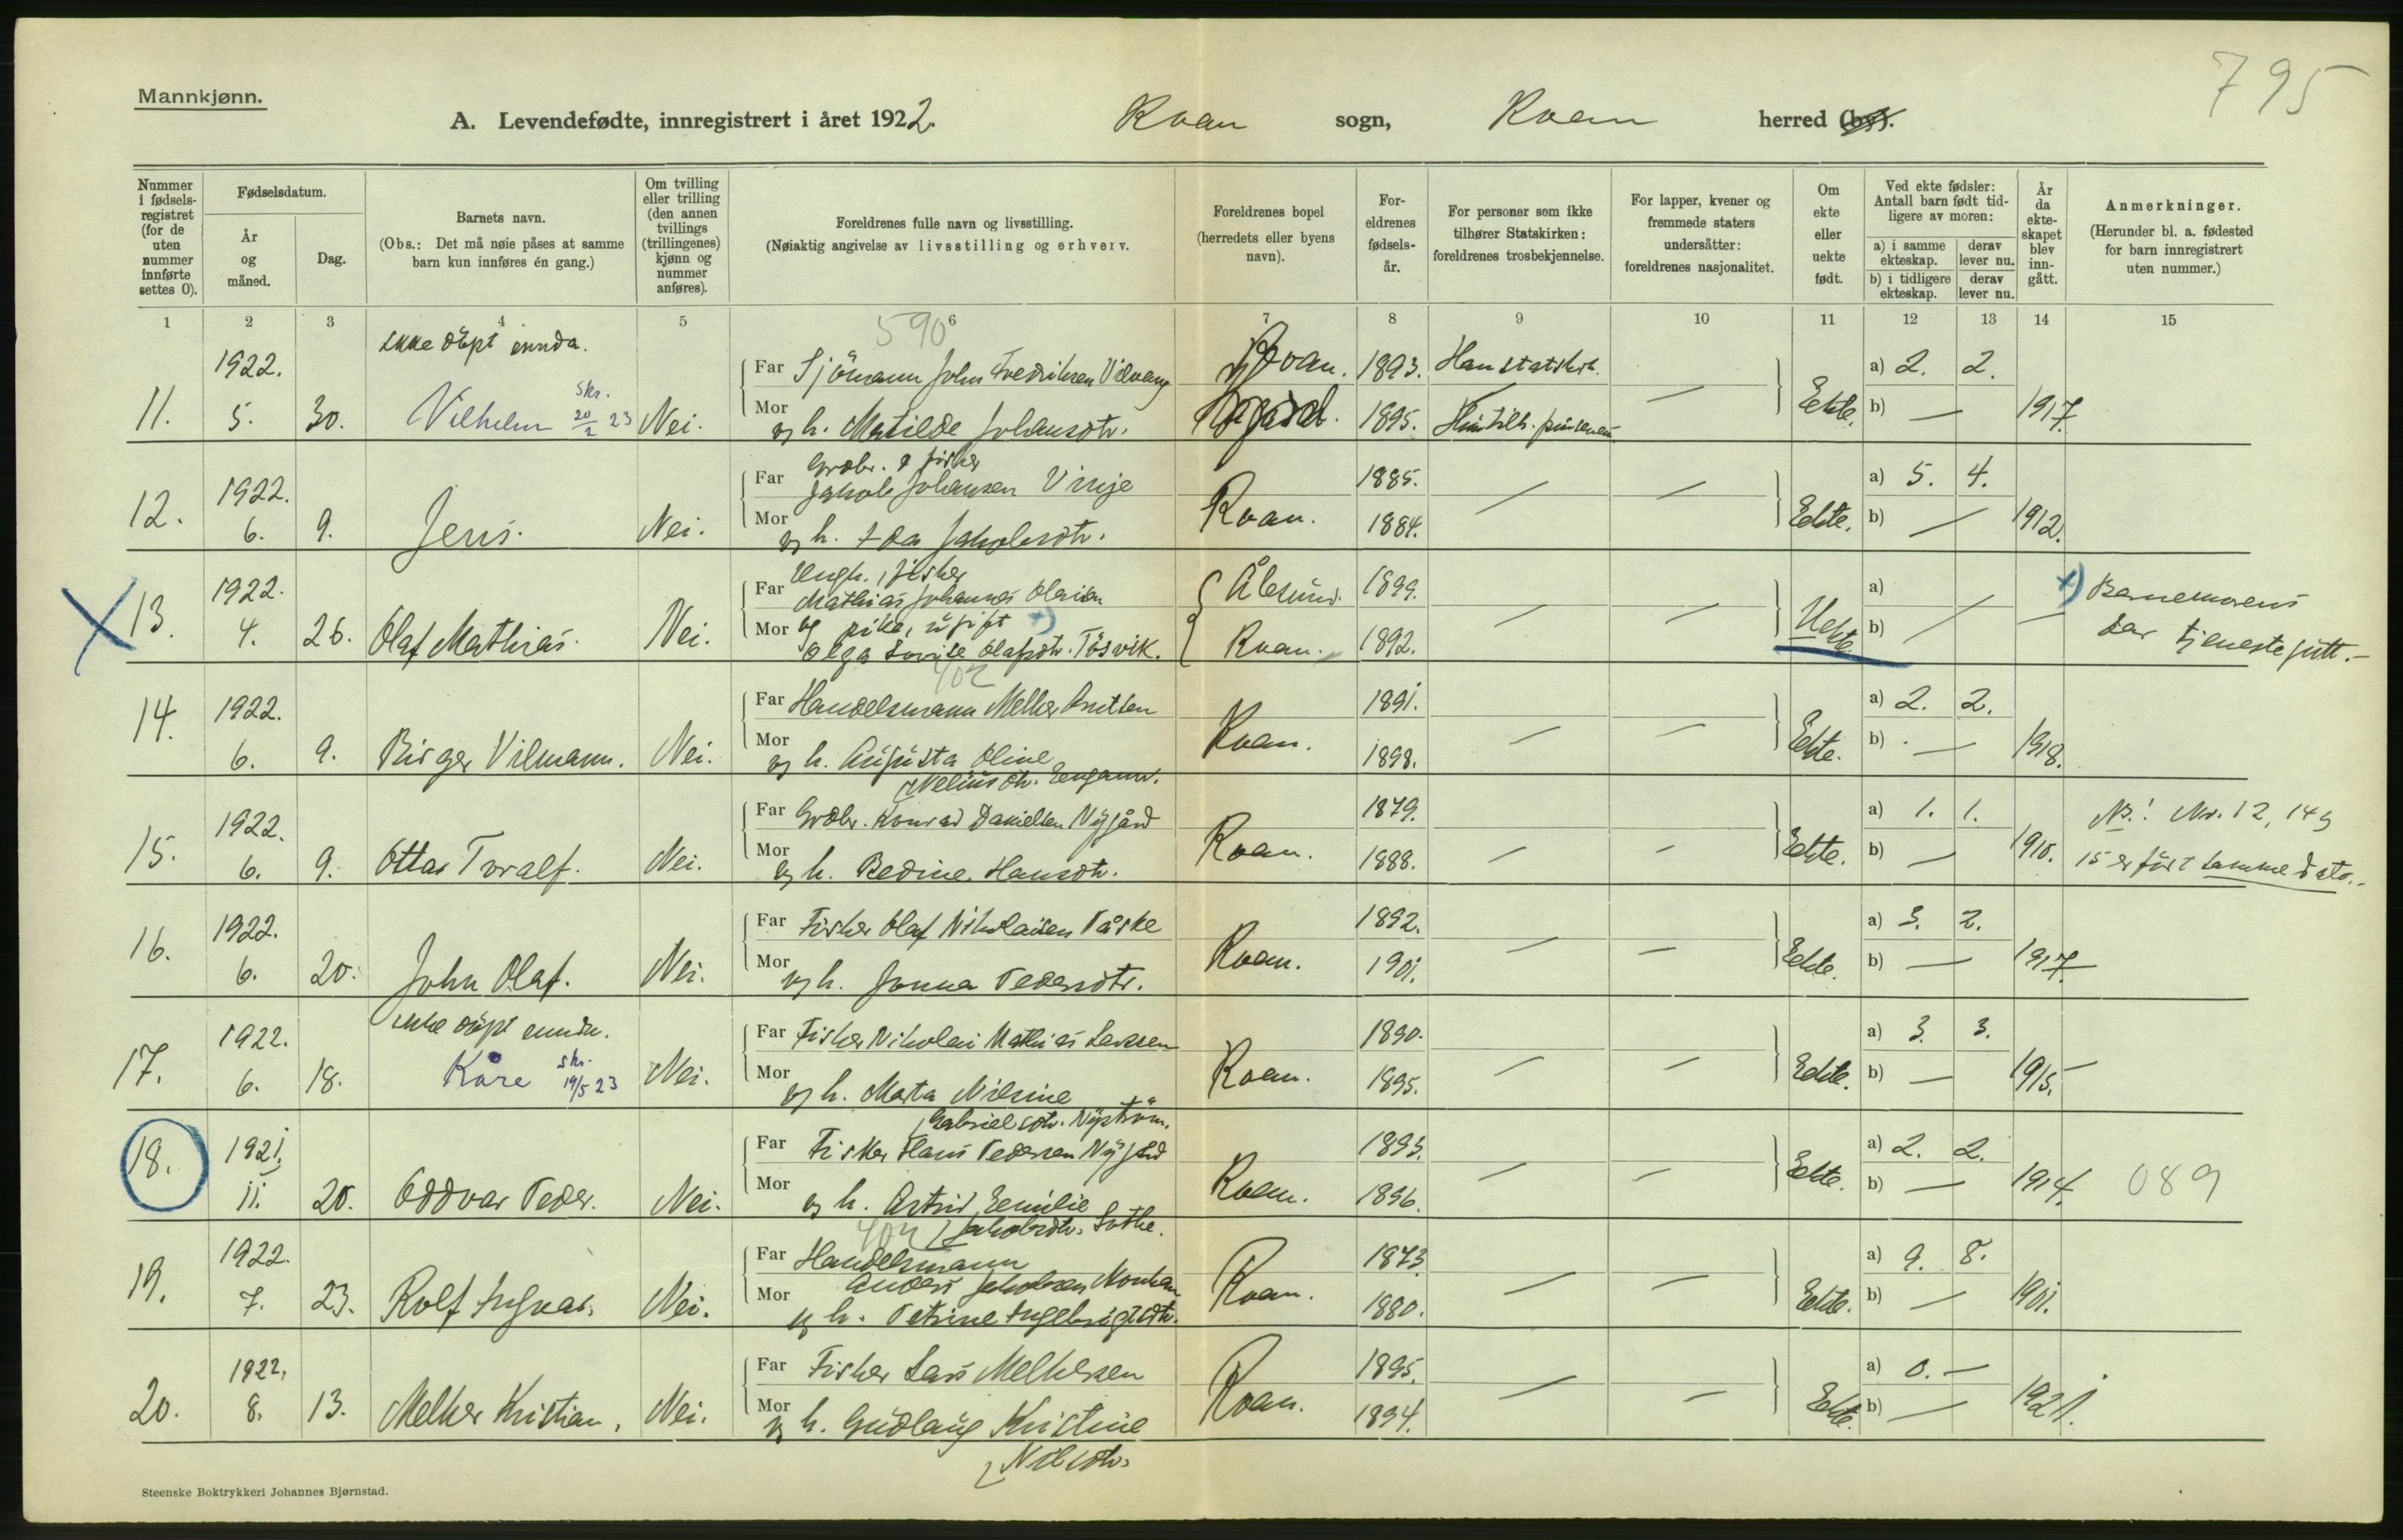 795
Mannkjønn.
A. Levendefødte, innregistrert i året 1922. Roan sogn, Roan herred (by).
Nummer i fødsels-registret (for de uten nummer innførte settes 0).
Fødselsdatum.
År og måned.
Dag.
Barnets navn.
(Obs.: Det må nøie påses at samme barn kun innføres én gang.)
Om tvilling eller trilling (den annen tvillings (trillingenes) kjønn og nummer anføres).
Foreldrenes fulle navn og livsstilling.
(Nøiaktig angivelse av livsstilling og erhverv.
Foreldrenes bopel (herredets eller byens navn).
For-eldrenes fødsels-år.
For personer som ikke tilhører Statskirken: foreldrenes trosbekjennelse.
For lapper, kvener og fremmede staters undersåtter: foreldrenes nasjonalitet.
Om ekte eller uekte født.
Ved ekte fødsler: Antall barn født tid-ligere av moren:
a) i samme ekteskap.
derav lever nu.
b) i tidligere ekteskap.
derav lever nu.
År da ekte-skapet blev inn-gått.
Anmerkninger.
(Herunder bl. a. fødested for barn innregistrert uten nummer.)
1 2 3 4 5 6 7 8 9 10 11 12 13 14 15
590
Ikke døpt ennda.
1922. Far Sjömann John Fredriksen Roan. 1893. Han statskirk. a) 2. 2.
11. 5. 30. Vilhelm skr. 20/2 23 Nei. Mor og h. Matilde Johansdtr. 1895. — Ekte. b) — 1917.
Grdbr. & fisker
1922. Far Jakob Johansen Vinje 1885. a) 5. 4.
12. 6. 9. Jens. Nei. Mor og h. Ida Jakobsdtr. Roan. 1884. — — Ekte. b) — 1912.
Ungk., fisker
1922. Far Mathias Johannes Olaisen Ålesund. 1899. a) x) Barnemorens
13. 4. 26. Olaf Mathias. Nei. Mor og pike, ugift x) — — Uekte. b) — — far tjenestegutt.—
Olga Lovise Olafsdtr. Tösvik. Roan. 1892.
402
1922. Far Handelsmann Melker Knutsen 1891. a) 2. 2.
14. 6. 9. Birger Vilmann. Nei. Mor og h. Augusta Oline Roan. 1898. — — Ekte. b) — 1918.
Neliusdtr.
1922. Far Grdbr. Konrad Danielsen Nygård 1879. a) 1. 1. NB! Nr. 12, 14 &
15. 6. 9. Ottar Toralf. Nei. Mor og h. Bedine Hansdtr. Roan. 1888. — — Ekte. b) — 1910. 15 er født samme dato.—
1922. Far Fisker Olaf Nikolaisen Påske 1892. a) 3. 2.
16. 6. 20. John Olaf. Nei. Mor og h. Jonna Pedersdtr. Roan. 1901. — — Ekte. b) — 1917.
Ikke døpt ennda.
1922. Far Fisker Nikolai Mathias Larssen 1890. a) 3. 3.
17. 6. 18. Kåre skr. 19/5 23 Nei. Mor og h. Marta Nilsine Roan. 1895. — — Ekte. b) — 1915.
Gabrielsdtr. Nyström.
1921. Far Fisker Hans Pedersen Nygård 1893. a) 2. 2.
18. 11. 20. Oddvar Peder. Nei. Mor og h. Astrid Emilie Roan. 1896. — — Ekte. b) — 1914. 089
402 Jakobsdtr.
1922. Far Handelsmann 1873. a) 9. 8.
19. 7. 23. Rolf Ingvar. Nei. Mor Anders Jakobsen Monkan Roan. — — Ekte. b) — 1901.
og h. Petrine Ingebrigtsdtr. 1880.
1922. Far Fisker Lars Melkersen 1895. a) 0. —
20. 8. 13. Melker Kristian. Nei. Mor og h. Gudlaug Kristine Roan. 1894. — — Ekte. b) — 1921.
Nilsdtr.
Steenske Boktrykkeri Johannes Bjørnstad.